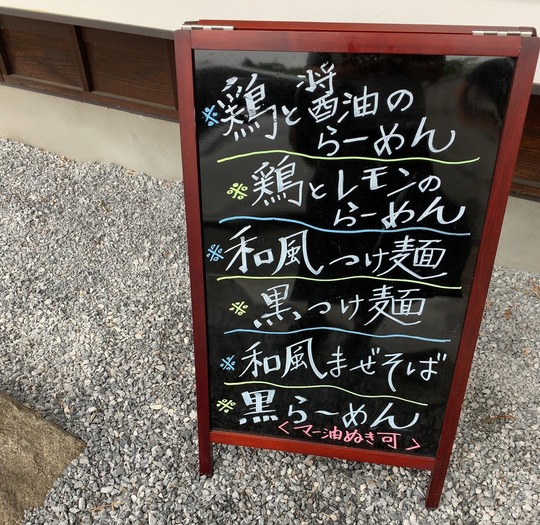 ※鶏と醤油の
らーめん
※鶏とレモンの
らーめん
※和風つけ麺
※黒つけ麺
※和風まぜそば
※黒らーめん
<マー油ぬき可>